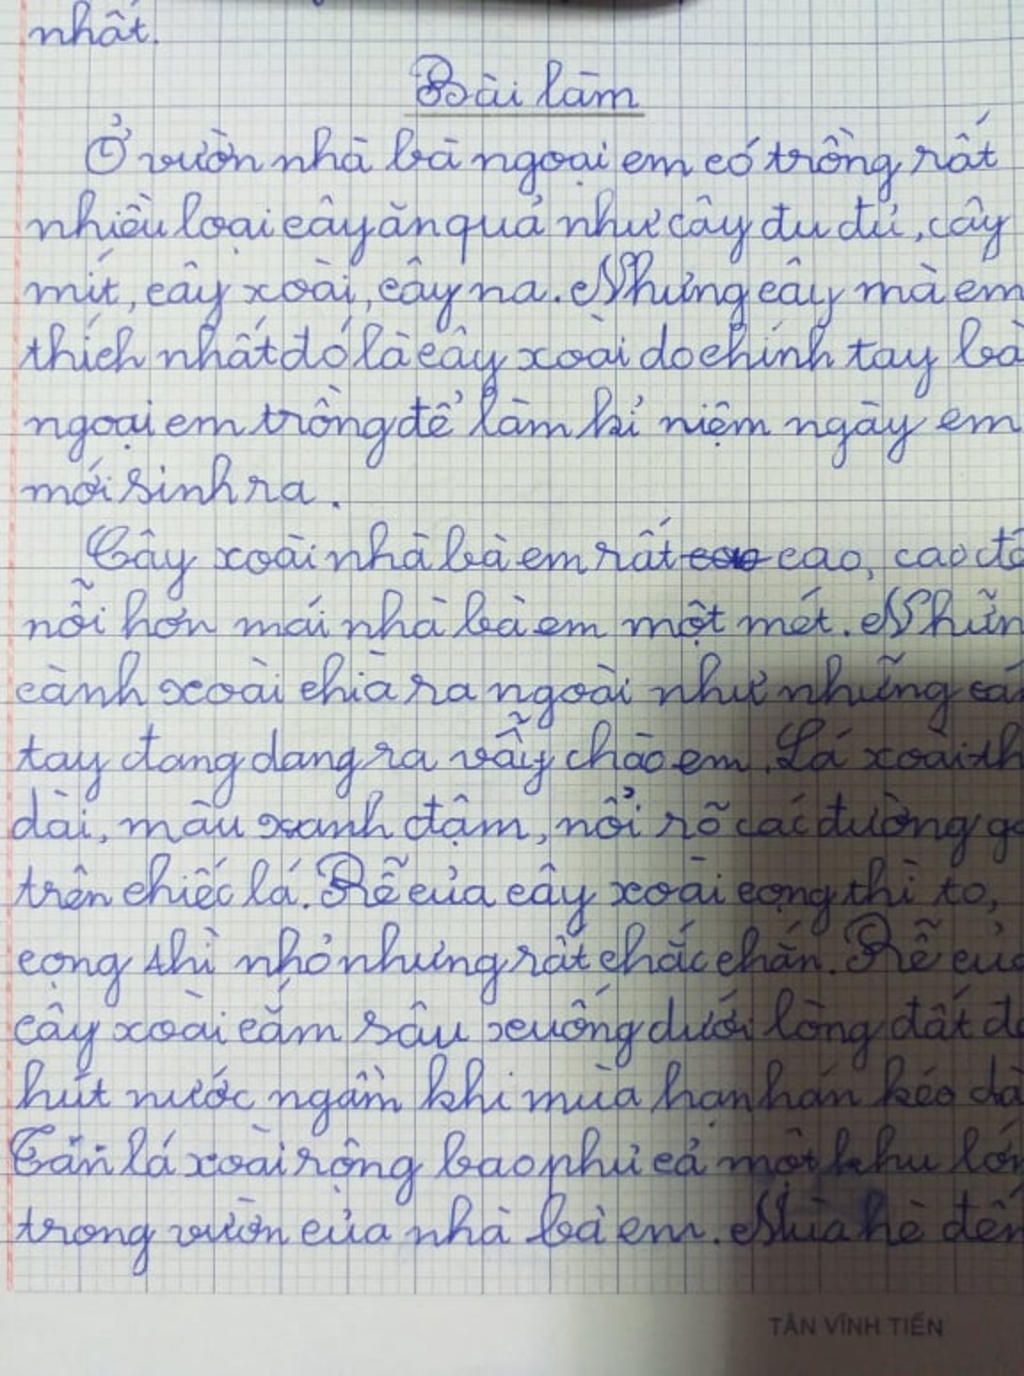 nhất.
Bài làm
Ở vườn nhà bà ngoại em có trồng rất
nhiều loại cây ăn quả như cây đu đủ, cây
mít, cây xoài, cây na. Nhưng cây mà em
thích nhất đó là cây xoài do chính tay bà
ngoại em trồng để làm kỉ niệm ngày em
mới sinh ra.
Cây xoài nhà bà em rất cao, cao đế
nỗi hơn mái nhà bà em một mét. Nhữn
cành xoài chìa ra ngoài như những cán
tay đang dang ra vẫy chào em. Lá xoài th
dài, màu xanh đậm, nổi rõ các đường gâ
trên chiếc lá. Rễ của cây xoài cọng thì to,
cọng thì nhỏ nhưng rất chắc chắn. Rễ củ
cây xoài cắm sâu xuống dưới lòng đất để
hút nước ngầm khi mùa hạn hán kéo dà
Tán lá xoài rộng bao phủ cả một khu lớn
trong vườn của nhà bà em. Mùa hè đến
TÂN VĨNH TIẾN